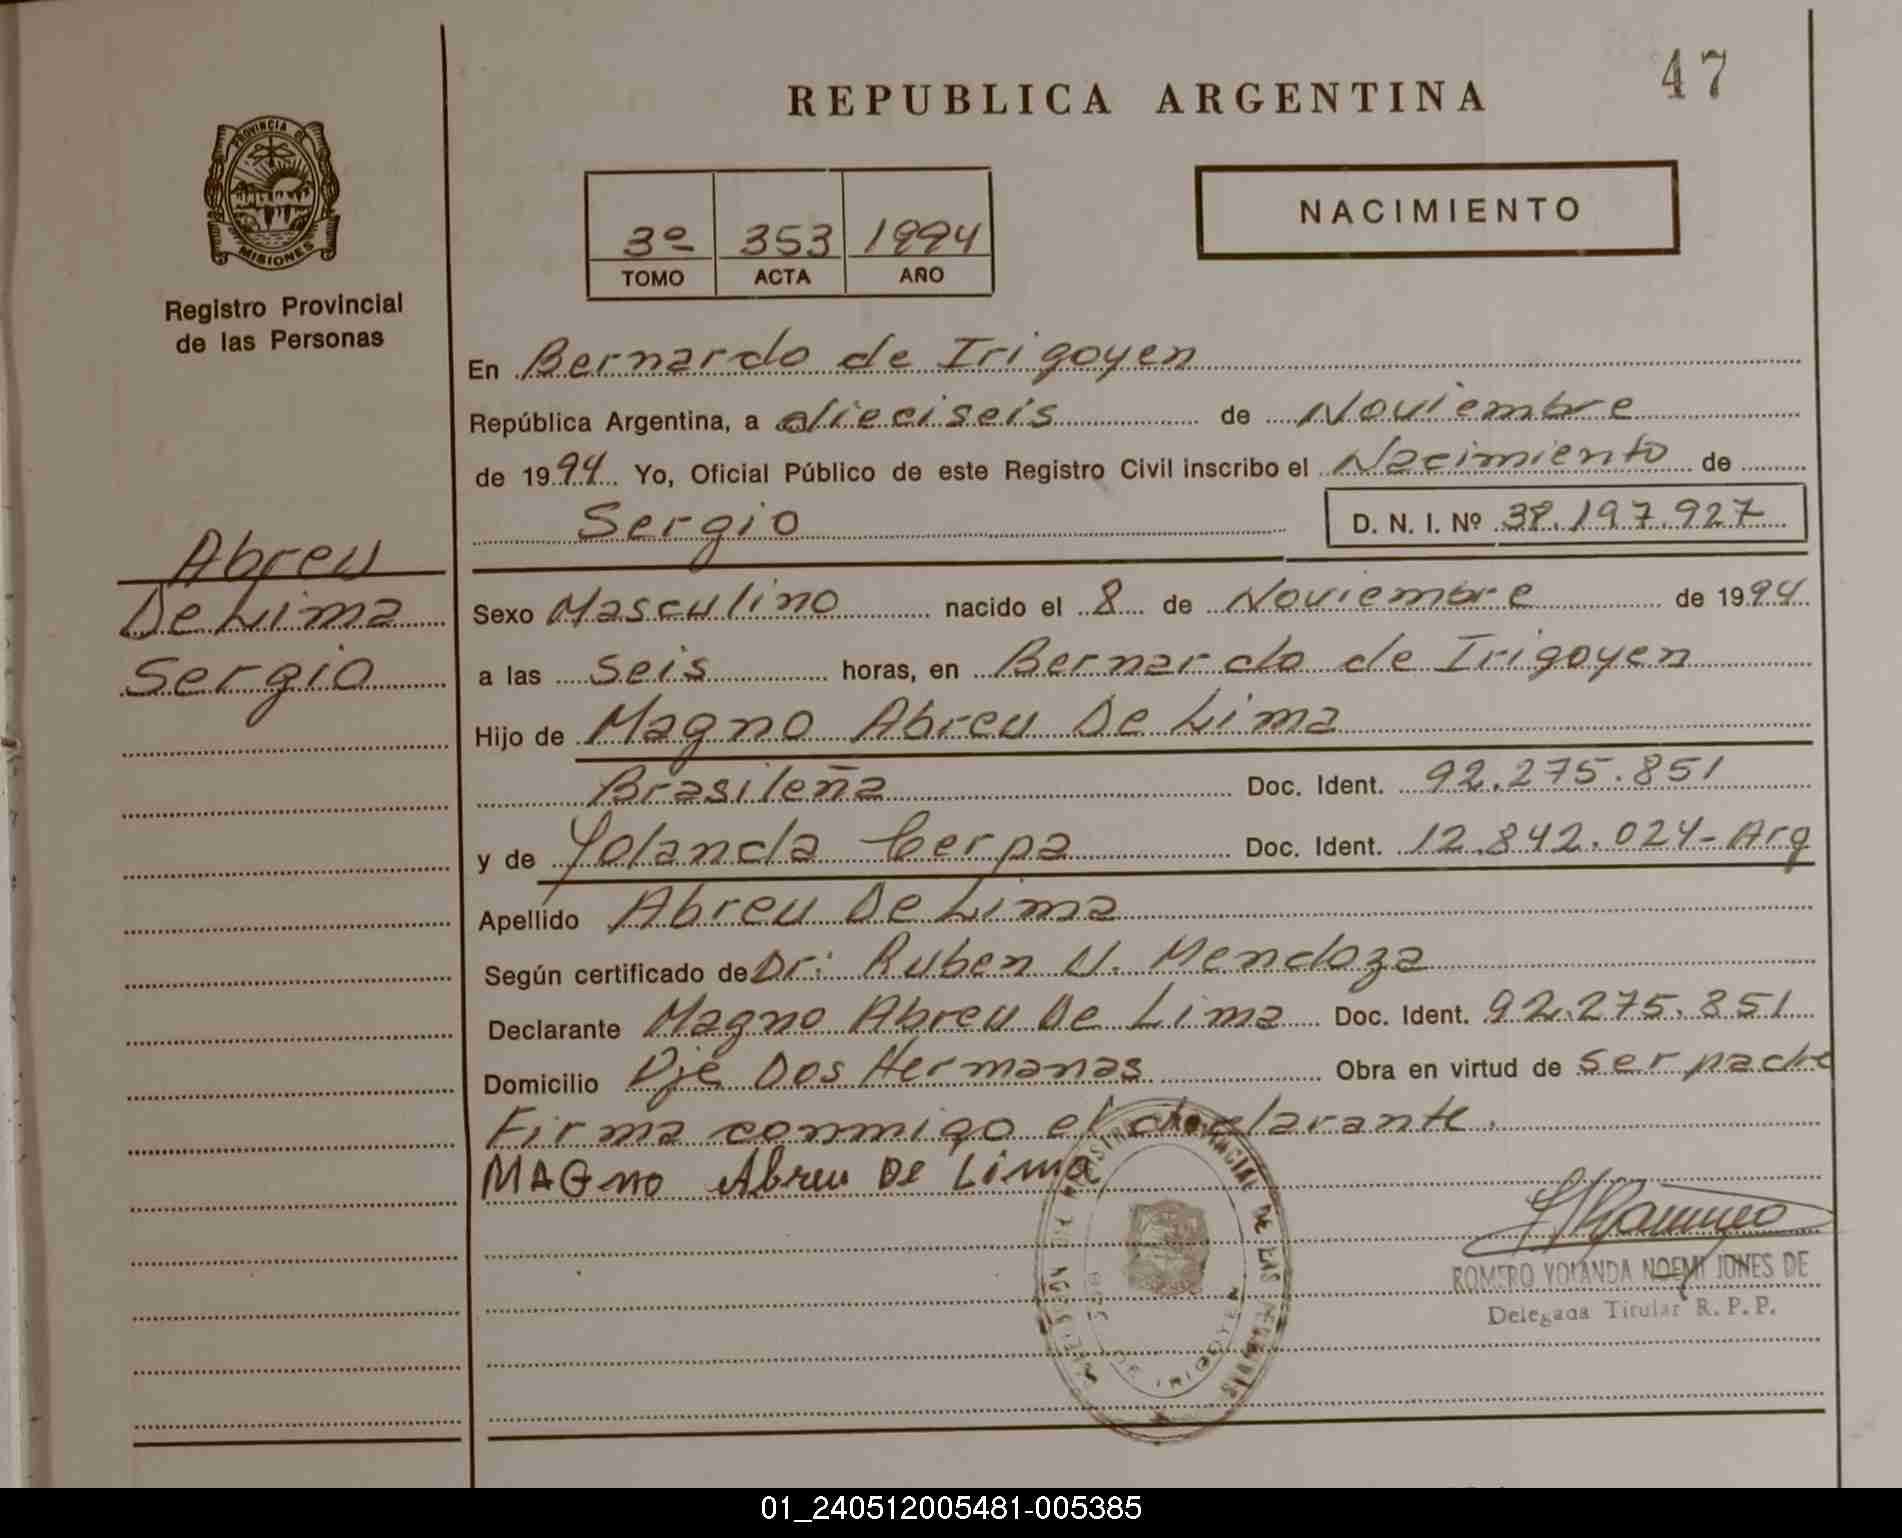 47
REPUBLICA ARGENTINA
PROVINCIA DE
MISIONES
Registro Provincial
de las Personas
3º 353 1994
TOMO ACTA AÑO
NACIMIENTO
En Bernardo de Irigoyen
República Argentina, a dieciseis de Noviembre
de 1994. Yo, Oficial Público de este Registro Civil inscribo el Nacimiento de
Sergio D. N. I. Nº 38.197.927
Abreu
De Lima
Sergio
Sexo Masculino nacido el 8 de Noviembre de 1994
a las seis horas, en Bernardo de Irigoyen
Hijo de Magno Abreu De Lima
Brasileña Doc. Ident. 92.275.851
y de Yolanda Cerpa Doc. Ident. 12.842.024-Arg
Apellido Abreu De Lima
Según certificado de Dr: Ruben U. Mendoza
Declarante Magno Abreu De Lima Doc. Ident. 92.275.851
Domicilio Pje Dos Hermanas Obra en virtud de ser padre
Firma conmigo el declarante.
MAGno Abreu De Lima
ROMERO YOLANDA NOEMI JONES DE
Delegada Titular R. P. P.
DE LAS
DE IRIGOYEN
01_240512005481-005385